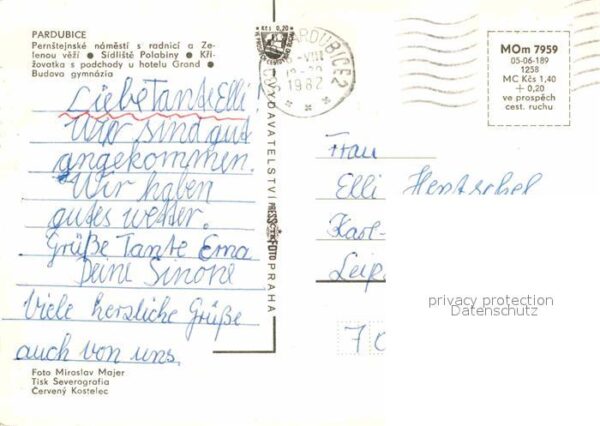 PARDUBICE
Pernštejnské náměstí s radnicí a Ze-
lenou věží ● Sídliště Polabiny ● Kři-
žovatka s podchody u hotelu Grand ●
Budova gymnázia
Kčs 0,20
PARDUBICE 2
VIII
1982
MOm 7959
05-06-189
1258
MC Kčs 1,40
+ 0,20
ve prospěch
cest. ruchu
Liebe Tante Elli
Wir sind gut
angekommen.
Wir haben
gutes wetter.
Grüße Tante Erna
Deine Simone
Viele herzliche Grüße
auch von uns.
VYDAVATELSTVÍ PRESSFOTO PRAHA
Frau
Elli Hentschel
Karl-
Leip
70
privacy protection
Datenschutz
Foto Miroslav Majer
Tisk Severografia
Červený Kostelec